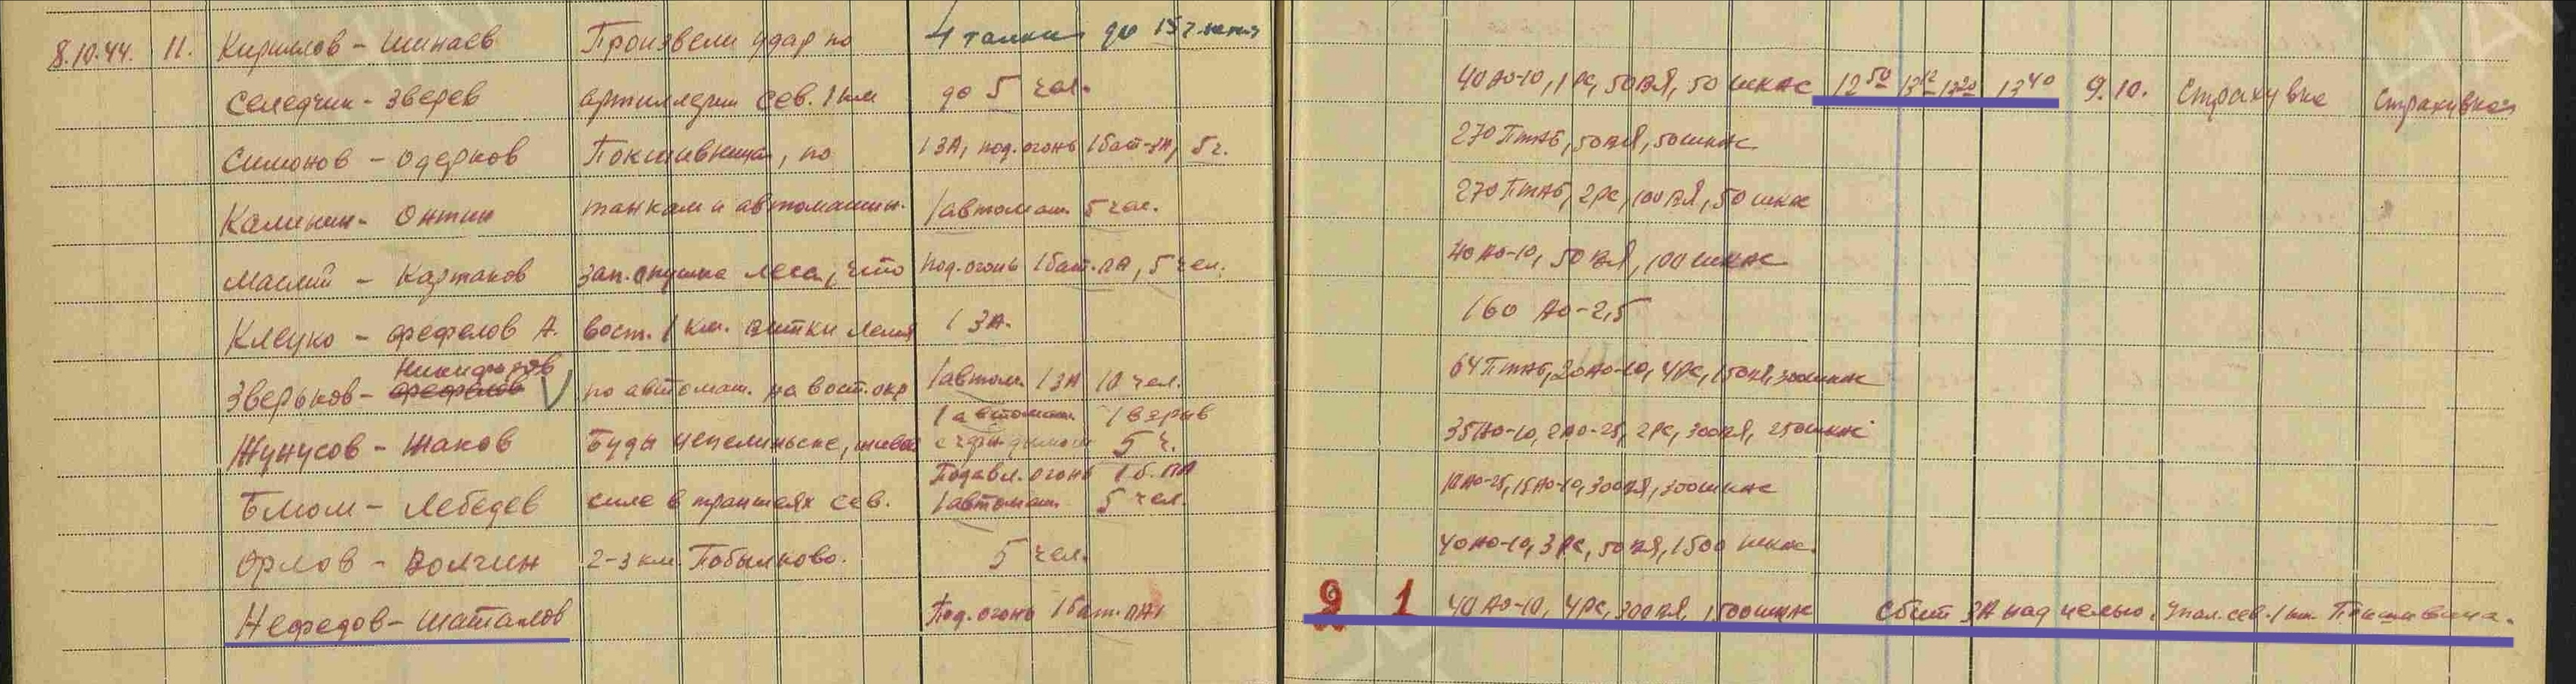 8.10.44. 11. Кирилов - Шинаев Произвели удар по 4 танка до 15
Селедчик - Зверев артиллерии сев. 1 км до 5 чел. 40 АО-10, 1 РС, 50 ВЯ, 50 шкас 12 50 13 12 13 20 13 40 9.10. Страхувка Страхувка
Симонов - Одерков , по 1 ЗА, под. огонь 1 бат. ЗА, 5 ч. 270 Птаб, 50 ВЯ, 50 шкас
Калинин - Онтин танкам и автомашин. 1 автомаш. 5 чел. 270 Птаб, 2 РС, 100 ВЯ, 50 шкас
Маслий - Картаков зап. опушка леса, что под. огонь 1 бат. ПА, 5 чел. 40 АО-10, 50 ВЯ, 100 шкас
Клецко - Фефелов А. вост. 1 км. 1 ЗА. 160 АО-2,5
Никифоров
Зверьков - Фефелов V по автомаш. на вост. окр 1 автом. 1 ЗА 10 чел. 64 Птаб, 20 АО-10, 4 РС, 150 ВЯ, 300 шкас
1 автомаш. 1 взрыв
Жунусов - Жаков Буды , живой 5 ч. 35 АО-10, 2 АО-25, 2 РС, 300 ВЯ, 250 шкас
Подавл. огонь 1 б. ПА
Блюм - Лебедев силе в траншеях сев. 1 автомаш. 5 чел. 10 АО-25, 15 АО-10, 300 ВЯ, 300 шкас
Орлов - Волчин 2-3 км. Побылково. 5 чел. 40 АО-10, 3 РС, 50 ВЯ, 1500 шкас.
Нефедов - Шаталов Под. огонь 1 бат. ПА 2 1 40 АО-10, 4 РС, 300 ВЯ, 1500 шкас Сбит ЗА над целью. Упал. сев. 1 км.